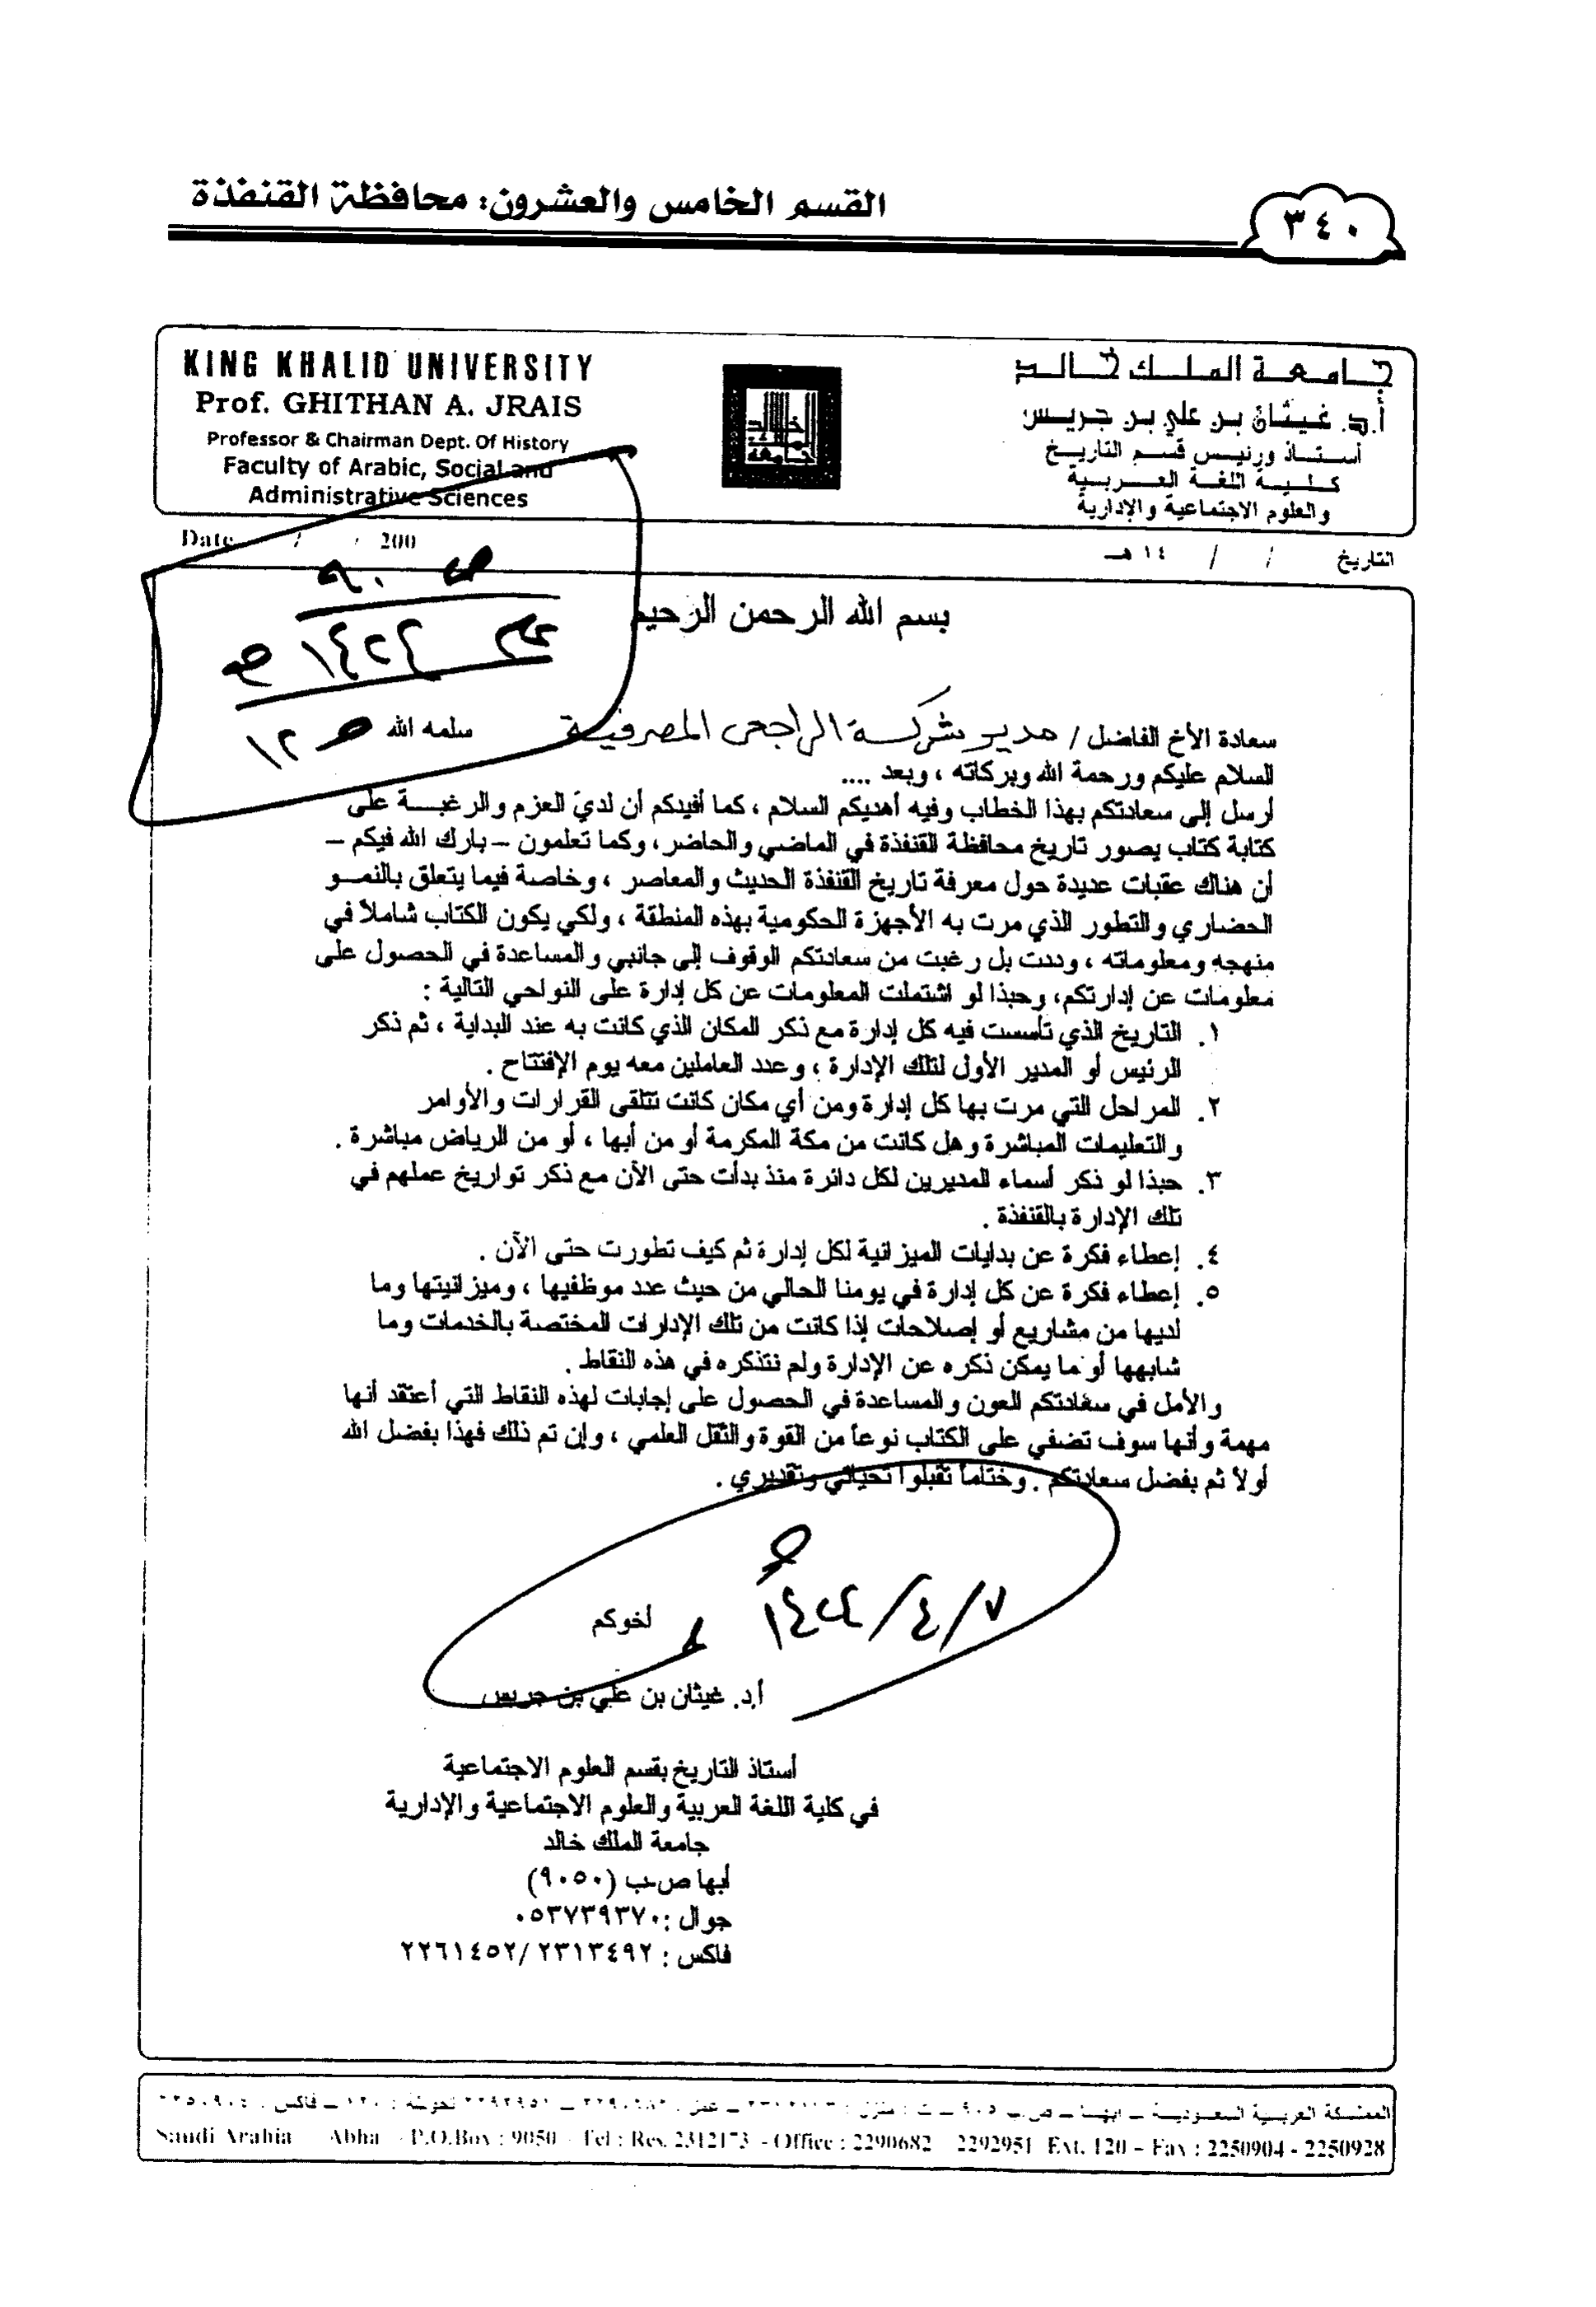 القسم الخامس والعشرون: محافظة القنفذة
٣٤٠
KING KHALID UNIVERSITY
Prof. GHITHAN A. JRAIS
Professor & Chairman Dept. Of History
Faculty of Arabic, Social and
Administrative Sciences
جامعة الملك خالد
أ.د. غيثان بن علي بن جريس
أستاذ ورئيس قسم التاريخ
كلية اللغة العربية
والعلوم الاجتماعية والإدارية
Date / / 200
التاريخ / / ١٤ هـ
ص ٩٠
١٤٢٢
ص ١٢
بسم الله الرحمن الرحيم
سعادة الأخ الفاضل / مدير شركة الراجحي المصرفية سلمه الله
السلام عليكم ورحمة الله وبركاته ، وبعد ....
أرسل إلى سعادتكم بهذا الخطاب وفيه أهديكم السلام ، كما أفيدكم أن لديّ العزم والرغبة على
كتابة كتاب يصور تاريخ محافظة القنفذة في الماضي والحاضر، وكما تعلمون – بارك الله فيكم –
أن هناك عقبات عديدة حول معرفة تاريخ القنفذة الحديث والمعاصر ، وخاصة فيما يتعلق بالنمو
الحضاري والتطور الذي مرت به الأجهزة الحكومية بهذه المنطقة ، ولكي يكون الكتاب شاملاً في
منهجه ومعلوماته ، وددت بل رغبت من سعادتكم الوقوف إلى جانبي والمساعدة في الحصول على
معلومات عن إدارتكم، وحبذا لو اشتملت المعلومات عن كل إدارة على النواحي التالية :
١. التاريخ الذي تأسست فيه كل إدارة مع ذكر المكان الذي كانت به عند البداية ، ثم ذكر
الرئيس أو المدير الأول لتلك الإدارة ، وعدد العاملين معه يوم الإفتتاح .
٢. المراحل التي مرت بها كل إدارة ومن أي مكان كانت تتلقى القرارات والأوامر
والتعليمات المباشرة وهل كانت من مكة المكرمة أو من أبها ، أو من الرياض مباشرة .
٣. حبذا لو ذكر أسماء المديرين لكل دائرة منذ بدأت حتى الآن مع ذكر تواريخ عملهم في
تلك الإدارة بالقنفذة .
٤. إعطاء فكرة عن بدايات الميزانية لكل إدارة ثم كيف تطورت حتى الآن .
٥. إعطاء فكرة عن كل إدارة في يومنا الحالي من حيث عدد موظفيها ، وميزانيتها وما
لديها من مشاريع أو إصلاحات إذا كانت من تلك الإدارات المختصة بالخدمات وما
شابهها أو ما يمكن ذكره عن الإدارة ولم نتذكره في هذه النقاط .
والأمل في سعادتكم العون والمساعدة في الحصول على إجابات لهذه النقاط التي أعتقد أنها
مهمة وأنها سوف تضفي على الكتاب نوعاً من القوة والثقل العلمي ، وإن تم ذلك فهذا بفضل الله
أولاً ثم بفضل سعادتكم . وختاماً تقبلوا تحياتي وتقديري .
١٤٢٢/٤/٧
أخوكم
أ.د. غيثان بن علي بن جريس
أستاذ التاريخ بقسم العلوم الاجتماعية
في كلية اللغة العربية والعلوم الاجتماعية والإدارية
جامعة الملك خالد
أبها ص.ب (٩٠٥٠)
جوال : ٠٥٣٧٣٩٣٧٠
فاكس : ٢٣١٣٤٩٢ / ٢٢٦١٤٥٢
المملكة العربية السعودية – أبها – ص.ب
Saudi Arabia Abha - P.O.Box : 9050 - Tel : Res. 2312173 - Office : 2290682 2292951 Ext. 120 – Fax : 2250904 - 2250928